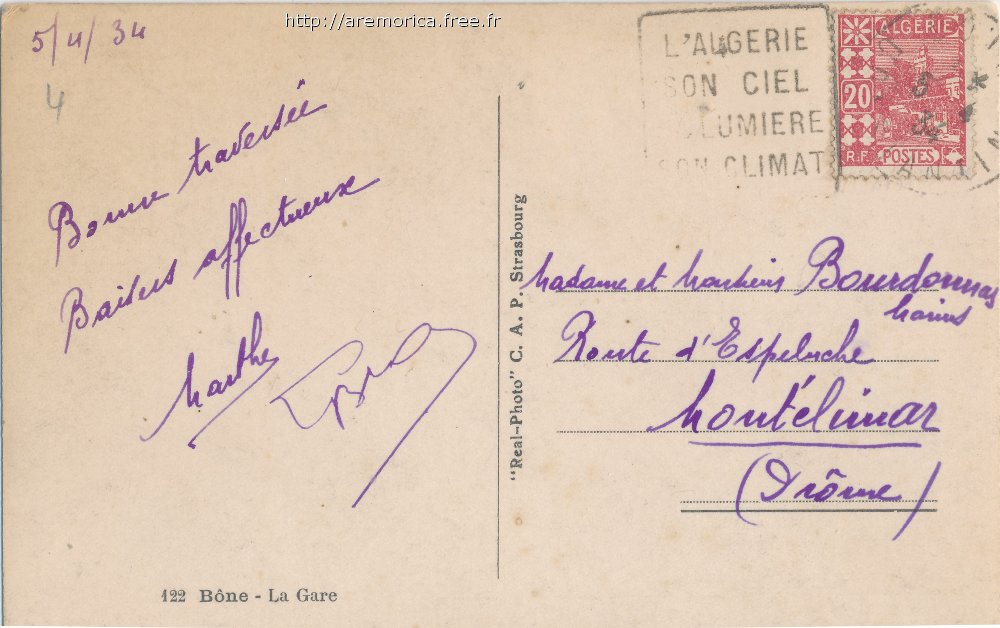 http://aremorica.free.fr
5/4/34
4
Bonne traversée
Baisers affectueux
Marthe
L'ALGERIE
SON CIEL
LUMIERE
SON CLIMAT
ALGÉRIE
20
R.F. POSTES
"Real-Photo" C. A. P. Strasbourg
Madame et Monsieur Bourdonnas
Marius
Route d'Espeluche
Montélimar
(Drôme)
122 Bône - La Gare